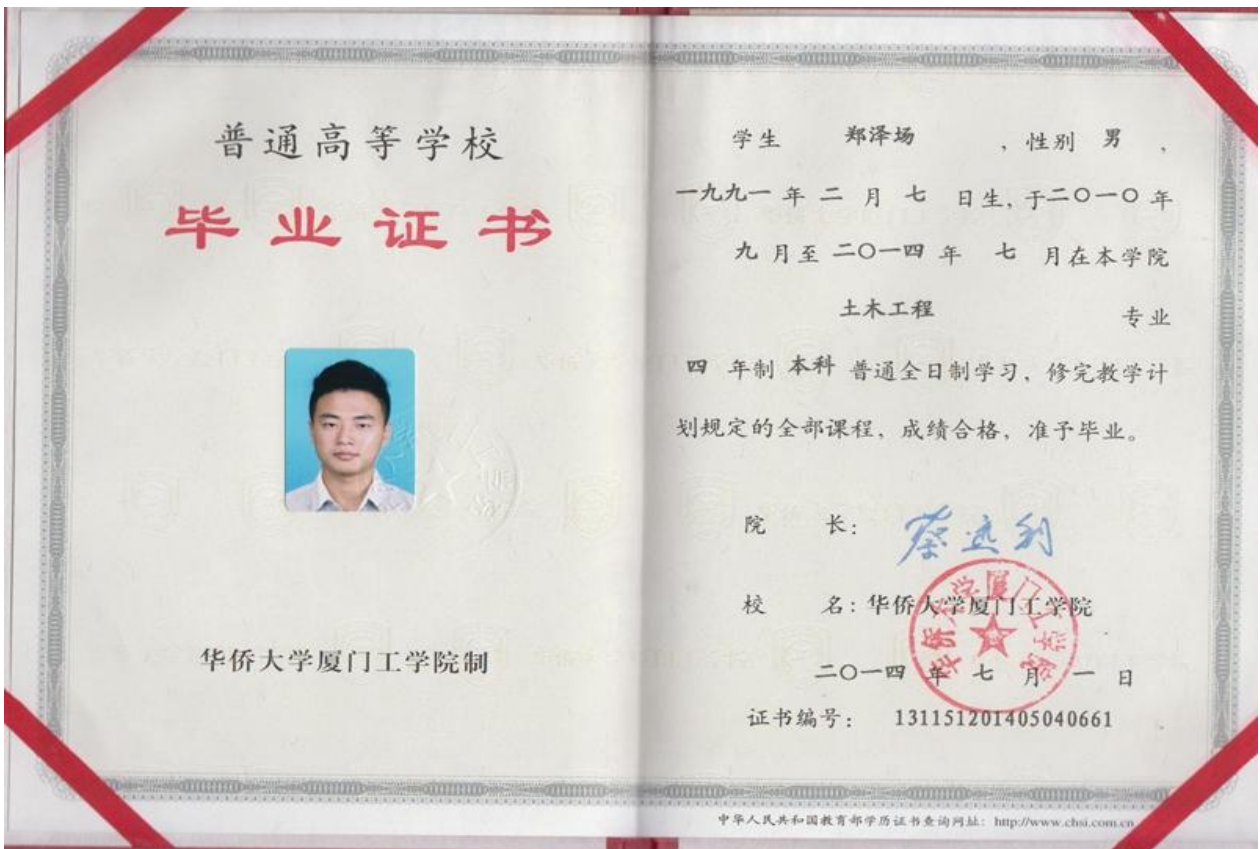 普通高等学校
毕业证书
华侨大学厦门工学院制
学生 郑泽场 ，性别 男 ，
一九九一 年 二 月 七 日生，于二〇一〇年
九 月至 二〇一四 年 七 月在本学院
土木工程 专业
四 年制 本科 普通全日制学习，修完教学计
划规定的全部课程，成绩合格，准予毕业。
院 长：
校 名：华侨大学厦门工学院
华侨大学厦门工学院
二〇一四 年 七 月 一 日
证书编号： 131151201405040661
中华人民共和国教育部学历证书查询网址：http://www.chsi.com.cn